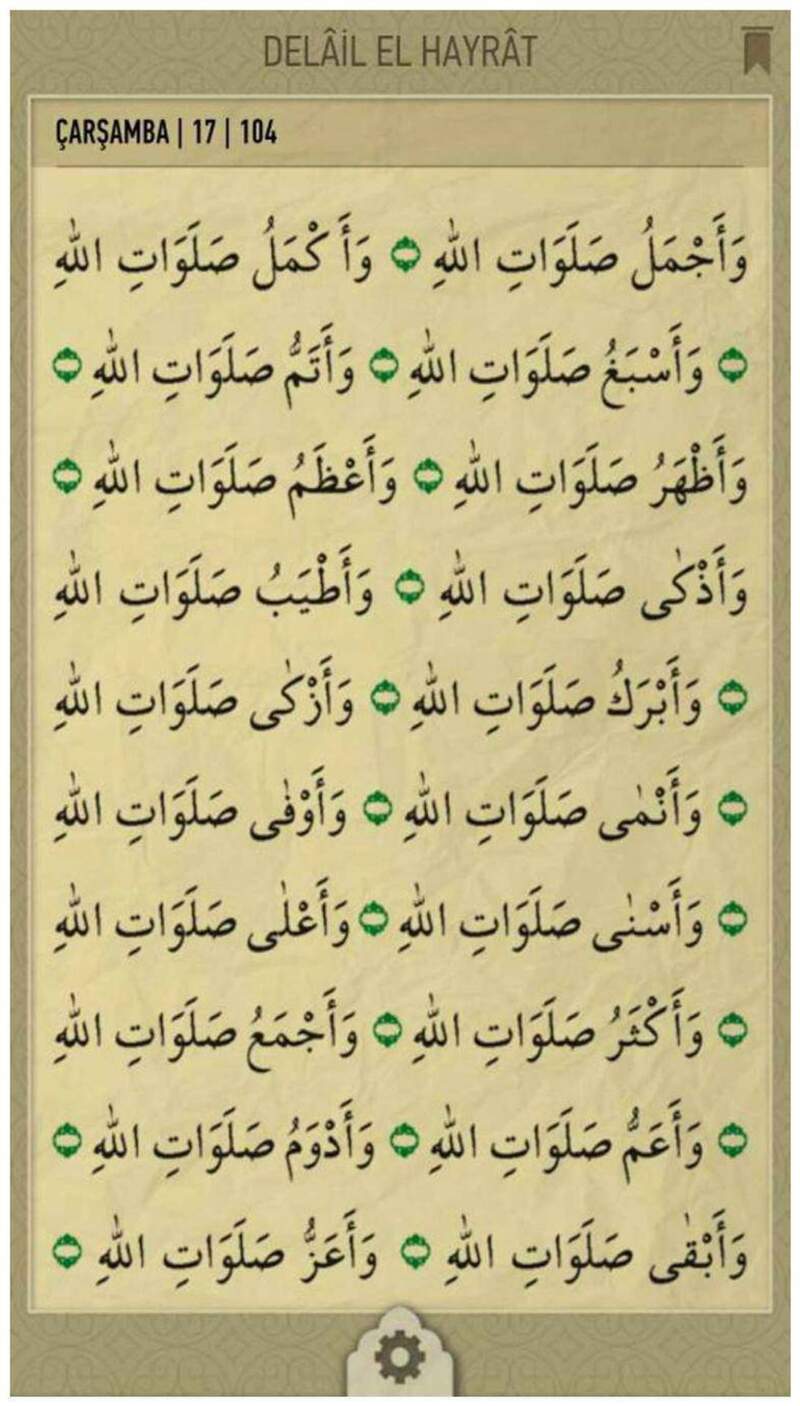 DELÂİL EL HAYRÂT
ÇARŞAMBA | 17 | 104
وَأَجْمَلُ صَلَوَاتِ اللهِ وَأَكْمَلُ صَلَوَاتِ اللهِ
وَأَسْبَغُ صَلَوَاتِ اللهِ وَأَتَمُّ صَلَوَاتِ اللهِ
وَأَظْهَرُ صَلَوَاتِ اللهِ وَأَعْظَمُ صَلَوَاتِ اللهِ
وَأَذْكٰى صَلَوَاتِ اللهِ وَأَطْيَبُ صَلَوَاتِ اللهِ
وَأَبْرَكُ صَلَوَاتِ اللهِ وَأَزْكٰى صَلَوَاتِ اللهِ
وَأَنْمٰى صَلَوَاتِ اللهِ وَأَوْفٰى صَلَوَاتِ اللهِ
وَأَسْنٰى صَلَوَاتِ اللهِ وَأَعْلٰى صَلَوَاتِ اللهِ
وَأَكْثَرُ صَلَوَاتِ اللهِ وَأَجْمَعُ صَلَوَاتِ اللهِ
وَأَعَمُّ صَلَوَاتِ اللهِ وَأَدْوَمُ صَلَوَاتِ اللهِ
وَأَبْقٰى صَلَوَاتِ اللهِ وَأَعَزُّ صَلَوَاتِ اللهِ